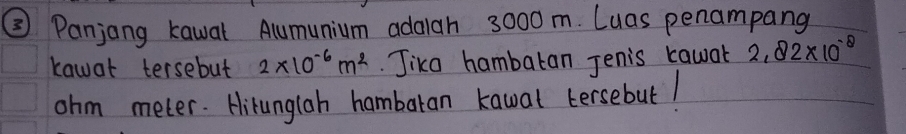 ③ Panjang kawat Alumunium adalah 3000 m. Luas penampang
kawat tersebut 2×10⁻⁶ m². Jika hambatan Jenis kawat 2,82×10⁻⁸
ohm meter. Hitunglah hambatan kawat tersebut!